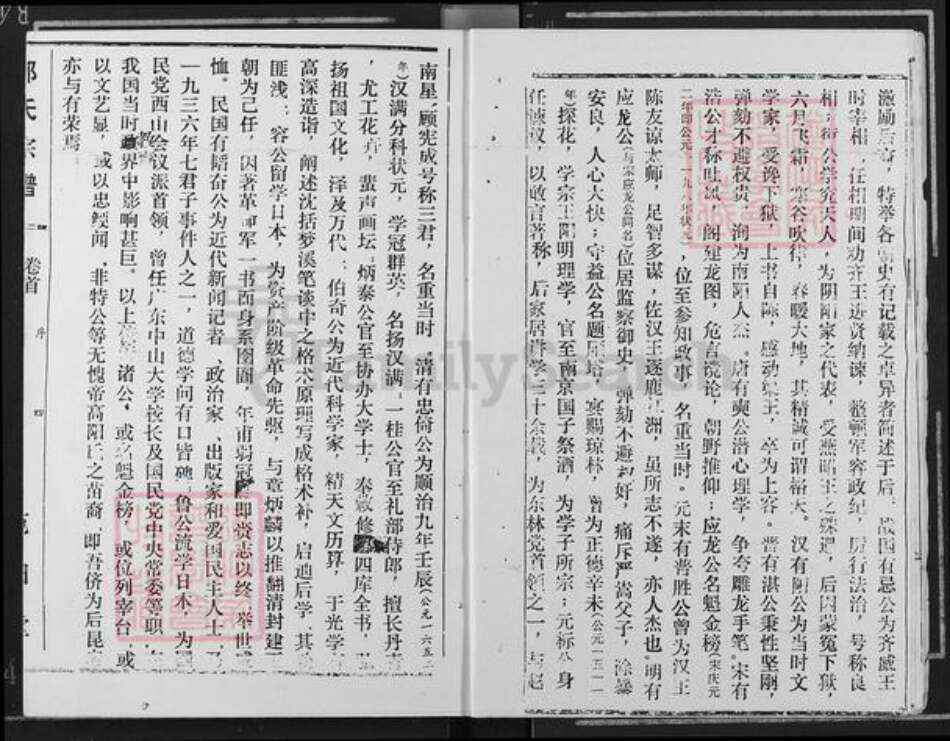 激励后裔，特举各朝史有记载之卓异者简述于后：战国有忌公为齐威王
时宰相，任相期间劝齐王进贤纳谏，整顿军容政纪，厉行法治，号称良
相；衍公学究天人，为阴阳家之代表，受燕昭王之殊遇，后因蒙冤下狱，
六月飞霜，寒谷吹律，春暖大地，其精诚可谓格天。汉有阳公为当时文
学家，受谗下狱，上书自陈，感动梁王，卒为上客。晋有湛公秉性坚刚，
弹劾不避权贵，洵为南阳人杰。唐有奭公潜心理学，争夸雕龙手笔。宋有
浩公才称吐凤，阁建龙图，危言谠论，朝野推仰；应龙公名魁金榜（宋庆元
二年即公元一一九六年状元），位至参知政事，名重当时。元末有普胜公曾为汉王
陈友谅太师，足智多谋，佐汉王逐鹿九洲，虽所志不遂，亦人杰也。明有
应龙公（与宋应龙公同名）位居监察御史，弹劾不避权奸，痛斥严嵩父子，除暴
安良，人心大快；守益公名题雁塔，宴赐琼林，曾为正德辛未（公元一五一一
年）探花，学宗王阳明理学，官至南京国子祭酒，为学子所宗；元标公身
任谏议，以敢言著称，后家居讲学三十余载，为东林党首领之一，与赵
南星、顾宪成号称三君，名重当时。清有忠倚公为顺治九年壬辰（公元一六五二
年）汉满分科状元，学冠群英，名扬汉满；一桂公官至礼部侍郎，擅长丹青
，尤工花卉，蜚声画坛；炳泰公官至协办大学士，奉敕修四库全书，弘
扬祖国文化，泽及万代；伯奇公为近代科学家，精天文历算，于光学有
高深造诣，阐述沈括梦溪笔谈中之格术原理写成格术补，启迪后学，其功
匪浅；容公留学日本，为资产阶级革命先驱，与章炳麟以推翻清封建王
朝为己任，因著革命军一书而身系囹圄，年甫弱冠即赍志以终，举世
恤。民国有韬奋公为近代新闻记者、政治家、出版家和爱国民主人士，乃
一九三六年七君子事件人之一，道德学问有口皆碑；鲁公流学日本，为国
民党西山会议派首领，曾任广东中山大学校长及国民党中央常委等职，在
我国当时政界中影响甚巨。以上诸公，或名魁金榜，或位列宰台，或
以文艺显，或以忠鲠闻，非特公等无愧帝高阳氏之苗裔，即吾侪为后昆者
亦与有荣焉。
氏宗谱
卷首
序
四